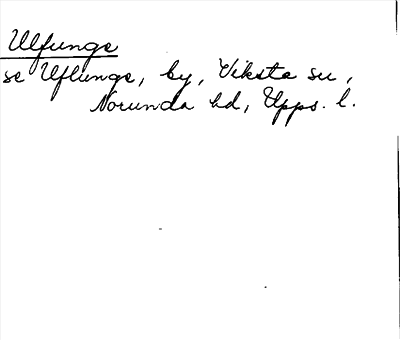 Ulfunge
se Uflunge, by, Viksta sn,
Norunda hd, Upps. l.